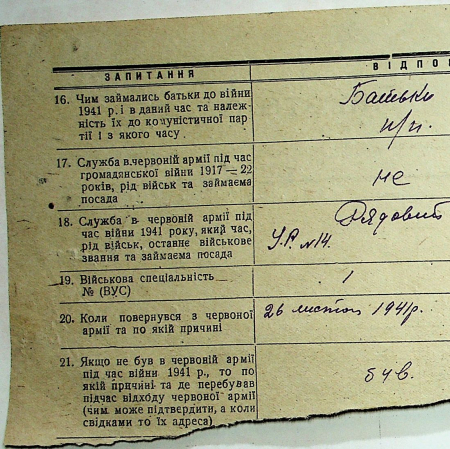 ЗАПИТАННЯ
ВІДПО
16. Чим займались батьки до війни
1941 р. і в даний час та належ-
ність їх до комуністичної пар
тії і з якого часу
Батьки
17. Служба в.червоній армії під час
громадянської війни 1917—22
років, рід військ та займаєма
посада
не
18. Служба в червоній армії під
час війни 1941 року, який час,
рід військ, останнє військове
звання та займаєма посада
Рядовий
У.Р. №14.
19. Військова спеціальність
№ (ВУС)
20. Коли повернувся з червоної
армії та по якій причині
26 листоп 1941р.
21. Якщо не був в червоній армії
під час війни 1941 р., то по
якій причині та де перебував
підчас відходу червоної армії
(чим може підтвердити, а коли
свідками то їх адреса)
був.